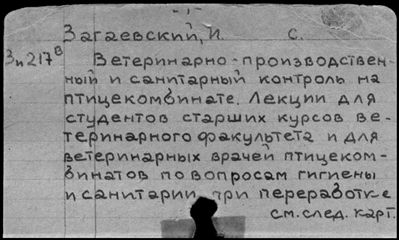 - 1 -
Загаевский, И. С.
Зи217в
Ветеринарно-производствен-
ный и санитарный контроль на
птицекомбинате. Лекции для
студентов старших курсов ве-
теринарного факультета и для
ветеринарных врачей птицеком-
бинатов по вопросам гигиены
и санитарии при переработке
см. след. карт.